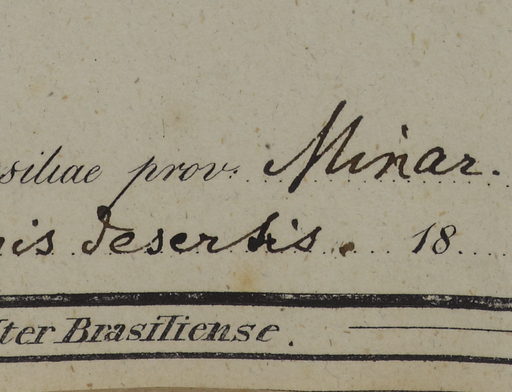 siliae prov. Minar.
nis desertis. 18
Iter Brasiliense.